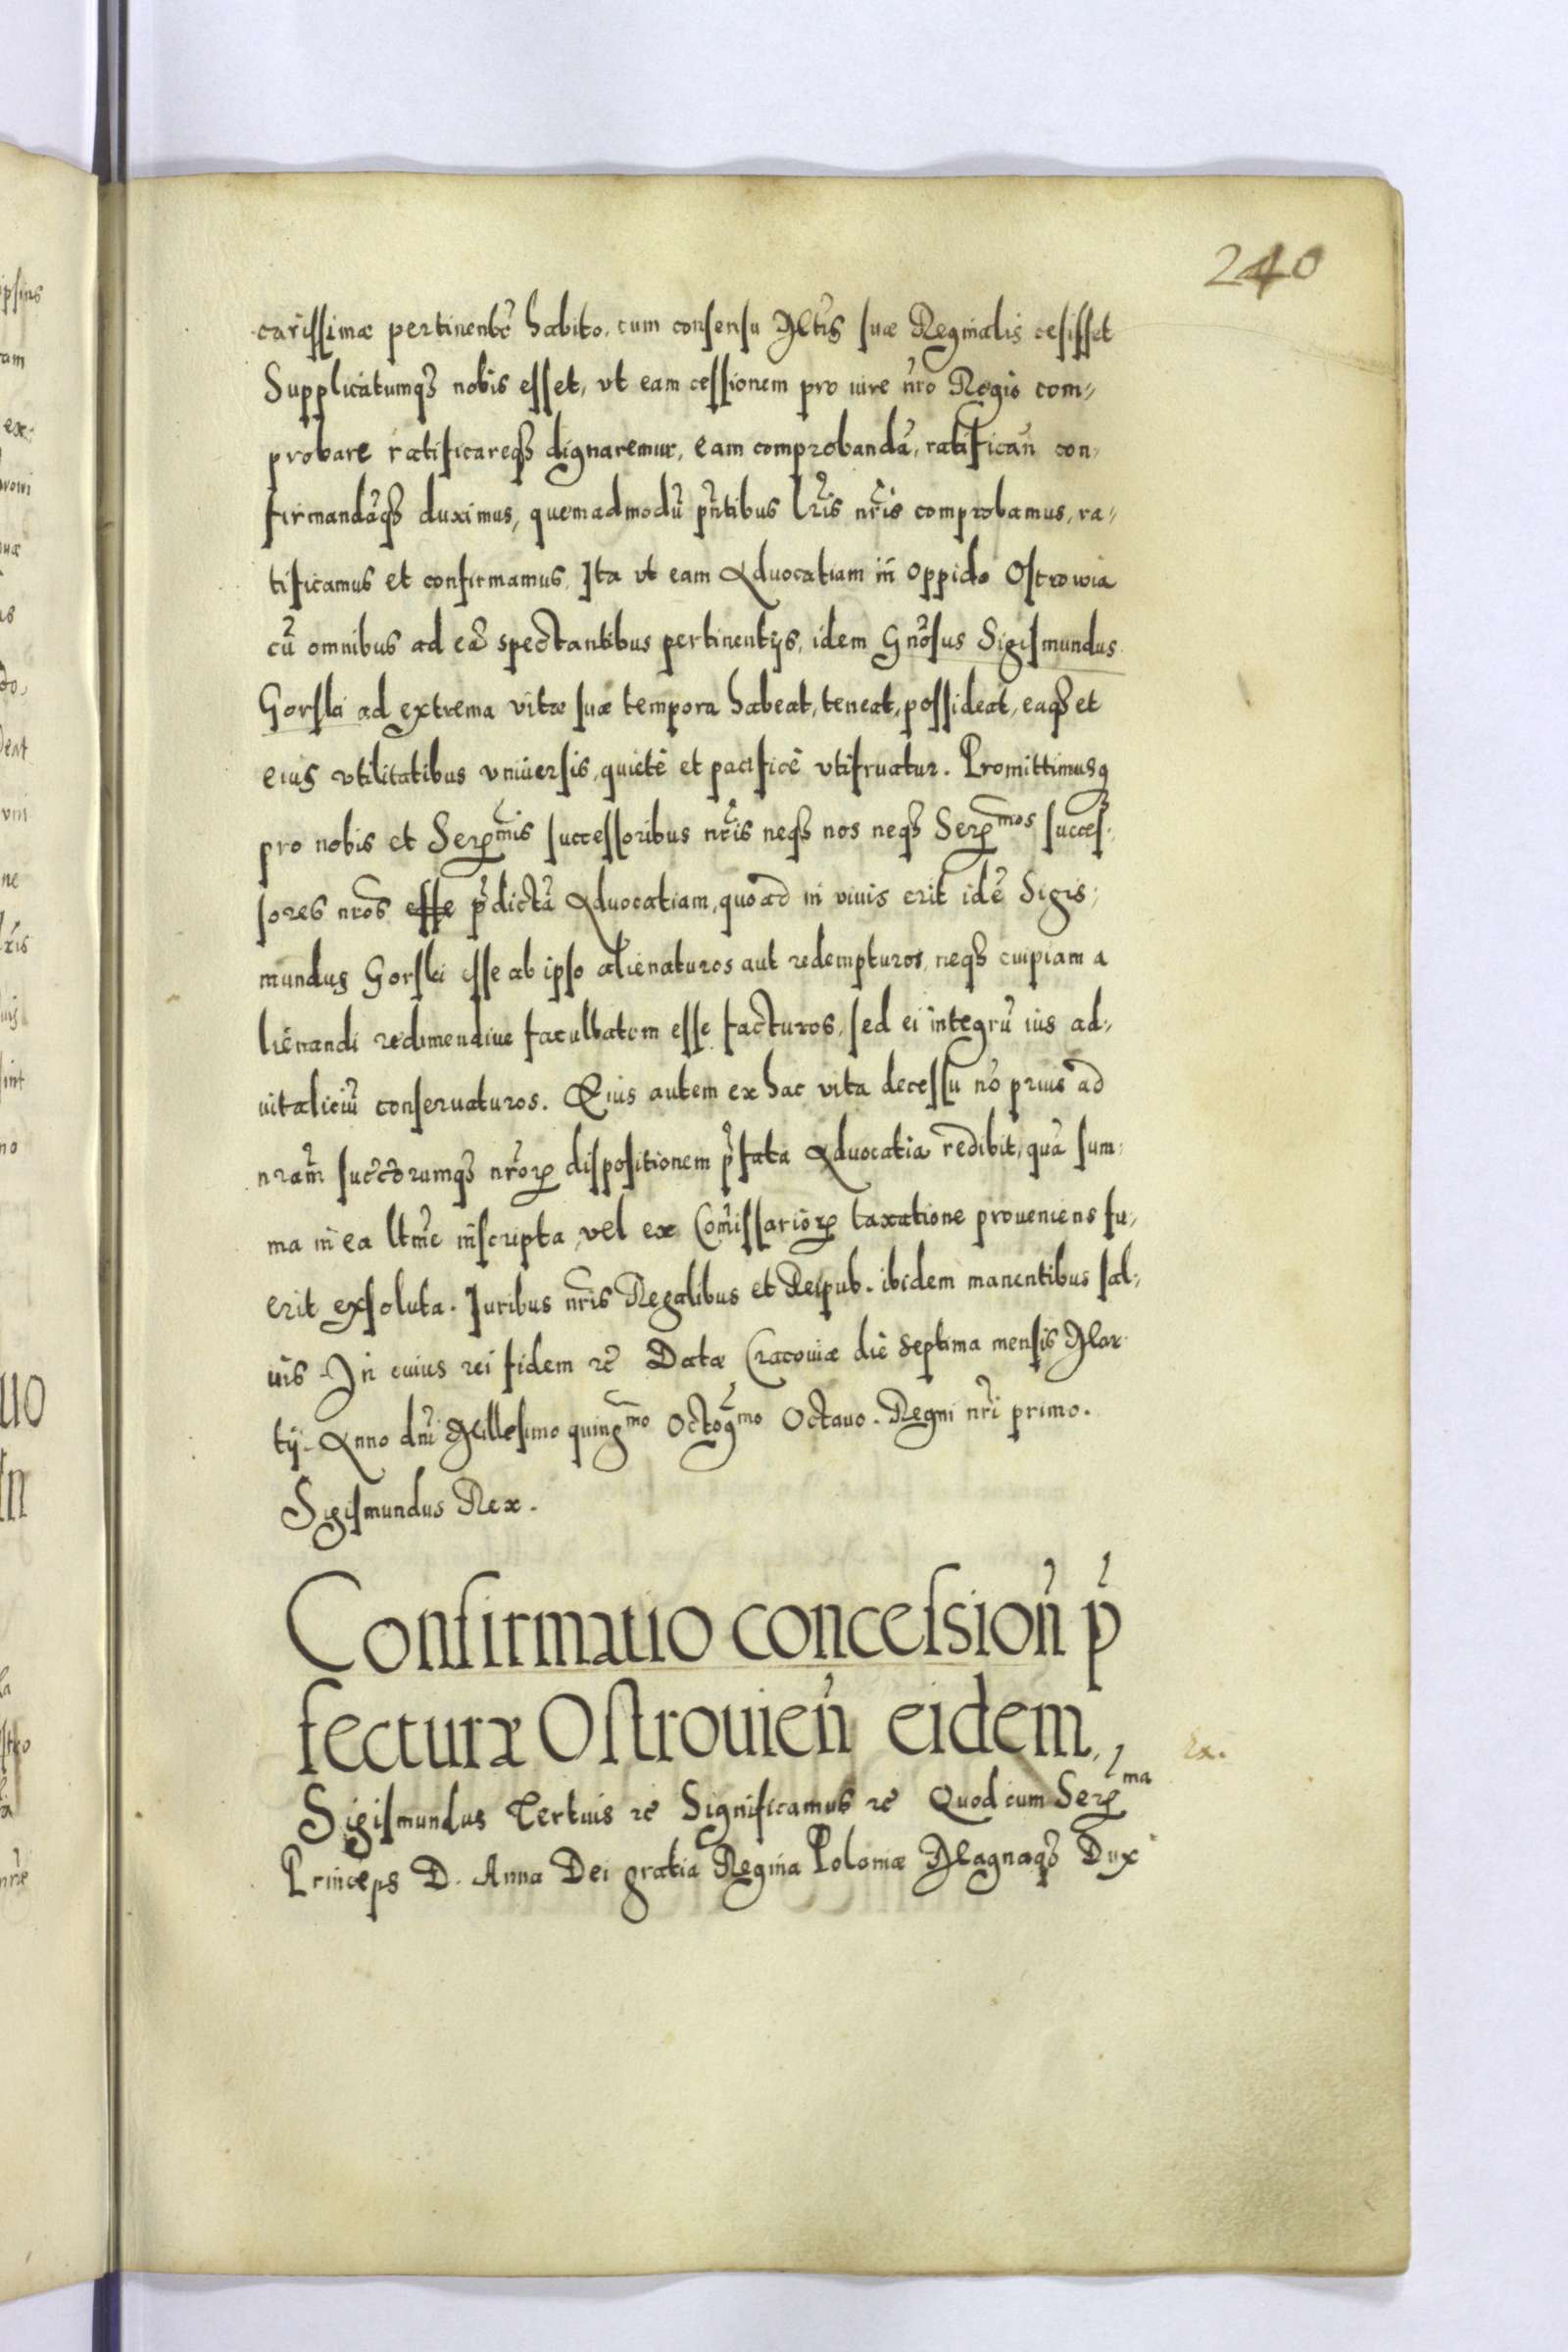 240
carissimæ pertinente habito, cum consensu Mtis suæ Reginalis cesisset
Supplicatumqꝫ nobis esset, vt eam cessionem pro iure nr̃o Regio com„
probare ratificareqꝫ dignaremur, eam comprobandã, ratifican̄ con„
firmandãqꝫ duximus, quemadmodũ pñtibus lr̃is nr̃is comprobamus, ra„
tificamus et confirmamus. Ita vt eam Aduocatiam in oppido Ostrowia
cũ omnibus ad eã spectantibus pertinentijs, idem Gnõsus Sigismundus
Gorski ad extrema vitæ suæ tempora habeat, teneat, possideat, eaqꝫ et
eius vtilitatibus vniuersis, quietè et pacificè vtifruatur. Promittimusqꝫ
pro nobis et Serꝫmis successoribus nr̃is neqꝫ nos neqꝫ Serꝫmos succes„
sores nr̃os esse p̃dictã Aduocatiam, quoad in viuis erit idẽ Sigis„
mundus Gorski esse ab ipso alienaturos aut redempturos, neqꝫ cuipiam a
lienandi redimendiue facultatem esse facturos, sed ei integrũ ius ad„
uitaliciũ conseruaturos. Eius autem ex hac vita decessu nõ prius ad
nram̃ succ̃orumqꝫ nr̃orꝫ dispositionem p̃fata Aduocatia redibit, quã sum„
ma in ea ltm̃e inscripta, vel ex Com̃issariorꝫ taxatione proueniens fu„
erit exsoluta. Iuribus nr̃is Regalibus et Reipub. ibidem manentibus sal„
uis. In cuius rei fidem ꝛc̃ Datæ Cracouiæ die septima mensis Mar
tij. Anno dnĩ Millesimo quingmo Octogmo Octauo. Regni nr̃i primo.
Sigismundus Rex.
Confirmatio concession̄ p̃
fecturæ Ostrouien̄ eidem,
Ex.
Sigismundus Tertius ꝛc̃ Significamus ꝛc̃ Quod cum Serꝫma
Princeps D. Anna Dei gratia Regina Poloniæ Magnaqꝫ Dux